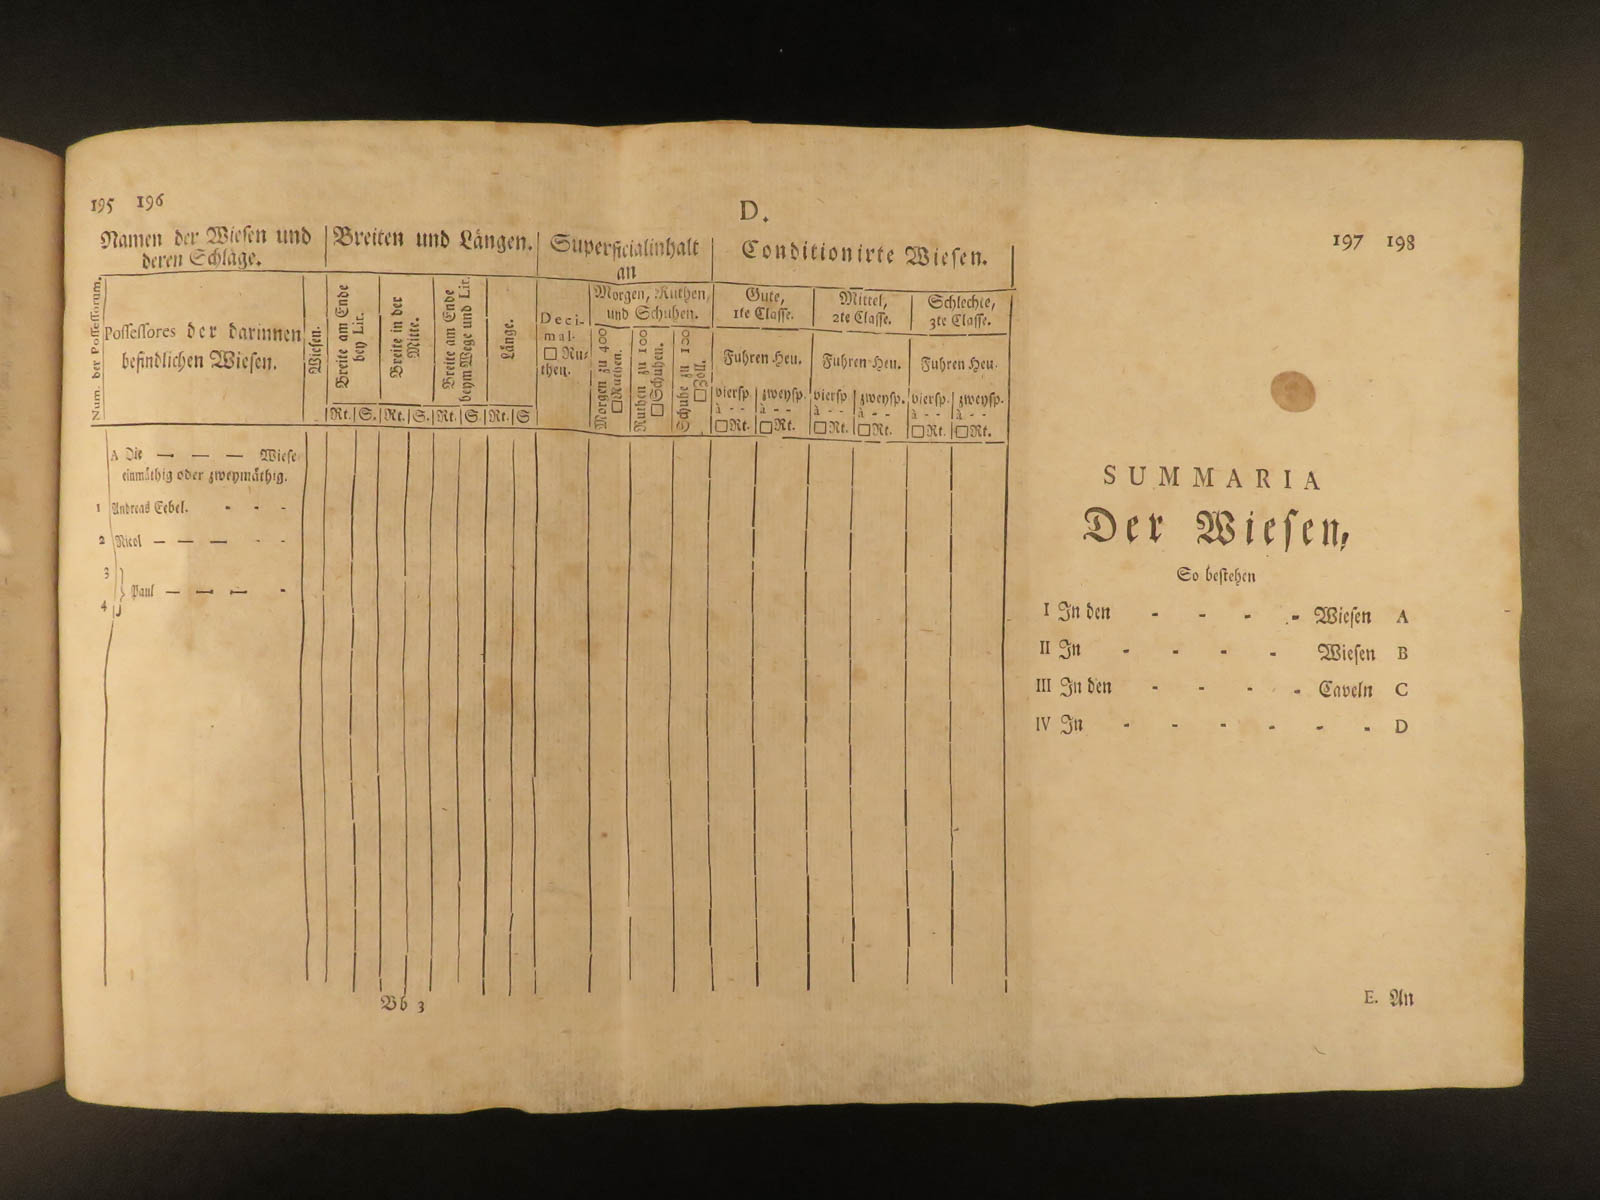 195 196
D.
197 198
Namen der Wiesen und
deren Schläge.
Breiten und Längen.
Superficialinhalt
an
Conditionirte Wiesen.
Num. der Possessorum.
Possessores der darinnen
befindlichen Wiesen.
Wiesen.
Breite am Ende
bey Lit.
Breite in der
Mitte.
Breite am Ende
beym Wege und Lit.
Länge.
Rt. S. Rt. S. Rt. S. Rt. S
Deci-
mal-
□ Ru-
then.
Morgen, Ruthen,
und Schuhen.
Morgen zu 400
□Ruthen.
Ruthen zu 100
□Schuhen.
Schuhe zu 100
□Zoll.
Gute,
1te Classe.
Mittel,
2te Classe.
Schlechte,
3te Classe.
Fuhren Heu.
Fuhren Heu.
Fuhren Heu.
viersp. zweysp. viersp. zweysp. viersp. zweysp.
à - - à - - à - - à - - à - - à - -
□Rt. □Rt. □Rt. □Rt. □Rt. □Rt.
A Die — — — Wiese
einmäthig oder zweymäthig.
1 Andreas Eebel. - - -
2 Nicol — — — - -
3
} Paul — — — -
4
SUMMARIA
Der Wiesen,
So bestehen
I In den - - - - Wiesen A
II In - - - - Wiesen B
III In den - - - - Caveln C
IV In - - - - - - D
Bb 3
E. An